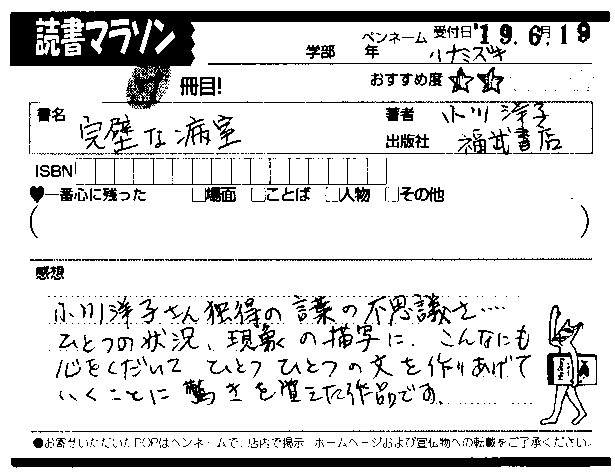 読書マラソン
学部 年 ペンネーム ハナミズキ 受付日'19.6月19
冊目!
おすすめ度 ☆☆
書名 完璧な病室
著者 小川洋子
出版社 福武書店
ISBN
♥一番心に残った □場面 □ことば □人物 □その他
( )
感想
小川洋子さん独得の言葉の不思議さ…
ひとつの状況、現象の描写に、こんなにも
心をくだいて ひとつひとつの文を作りあげて
いくことに 驚きを覚えた作品です。
●お寄せいただいたPOPはペンネームで、店内で掲示・ホームページおよび宣伝物への転載をご了承ください。